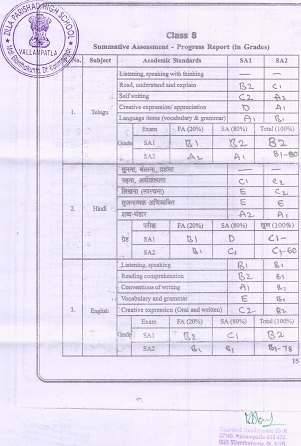 ZILLA PARISHAD HIGH SCHOOL
VALLAMPATLA
Class 8
Summative Assessment - Progress Report (in Grades)
No. Subject Academic Standards SA1 SA2
Listening, speaking with thinking — —
Read, understand and explain B2 C1
Self writing C2 A2
Creative expression/ appreciation D A1
Language items (vocabulary & grammar) A1 B1
1. Telugu
Exam FA (20%) SA (80%) Total (100%)
Grade SA1 B1 B2 B2
SA2 A2 A1 B1-80
सुनना, बोलना, — —
पढ़ना, C1 C2
लिखना E C2
सृजनात्मक अभिव्यक्ति E E
शब्द-भंडार A2 A1
2. Hindi
परीक्षा FA (20%) SA (80%) कुल (100%)
ग्रेड SA1 B1 D C1-
SA2 B1 C1 C1-60
Listening, speaking B1 B1
Reading comprehension B2 B1
Conventions of writing A1 B2
Vocabulary and grammar E B1
Creative expression (Oral and written) C2 B2
3. English
Exam FA (20%) SA (80%) Total (100%)
Grade SA1 B2 C1 B2
SA2 B1 B1 B1-78
15